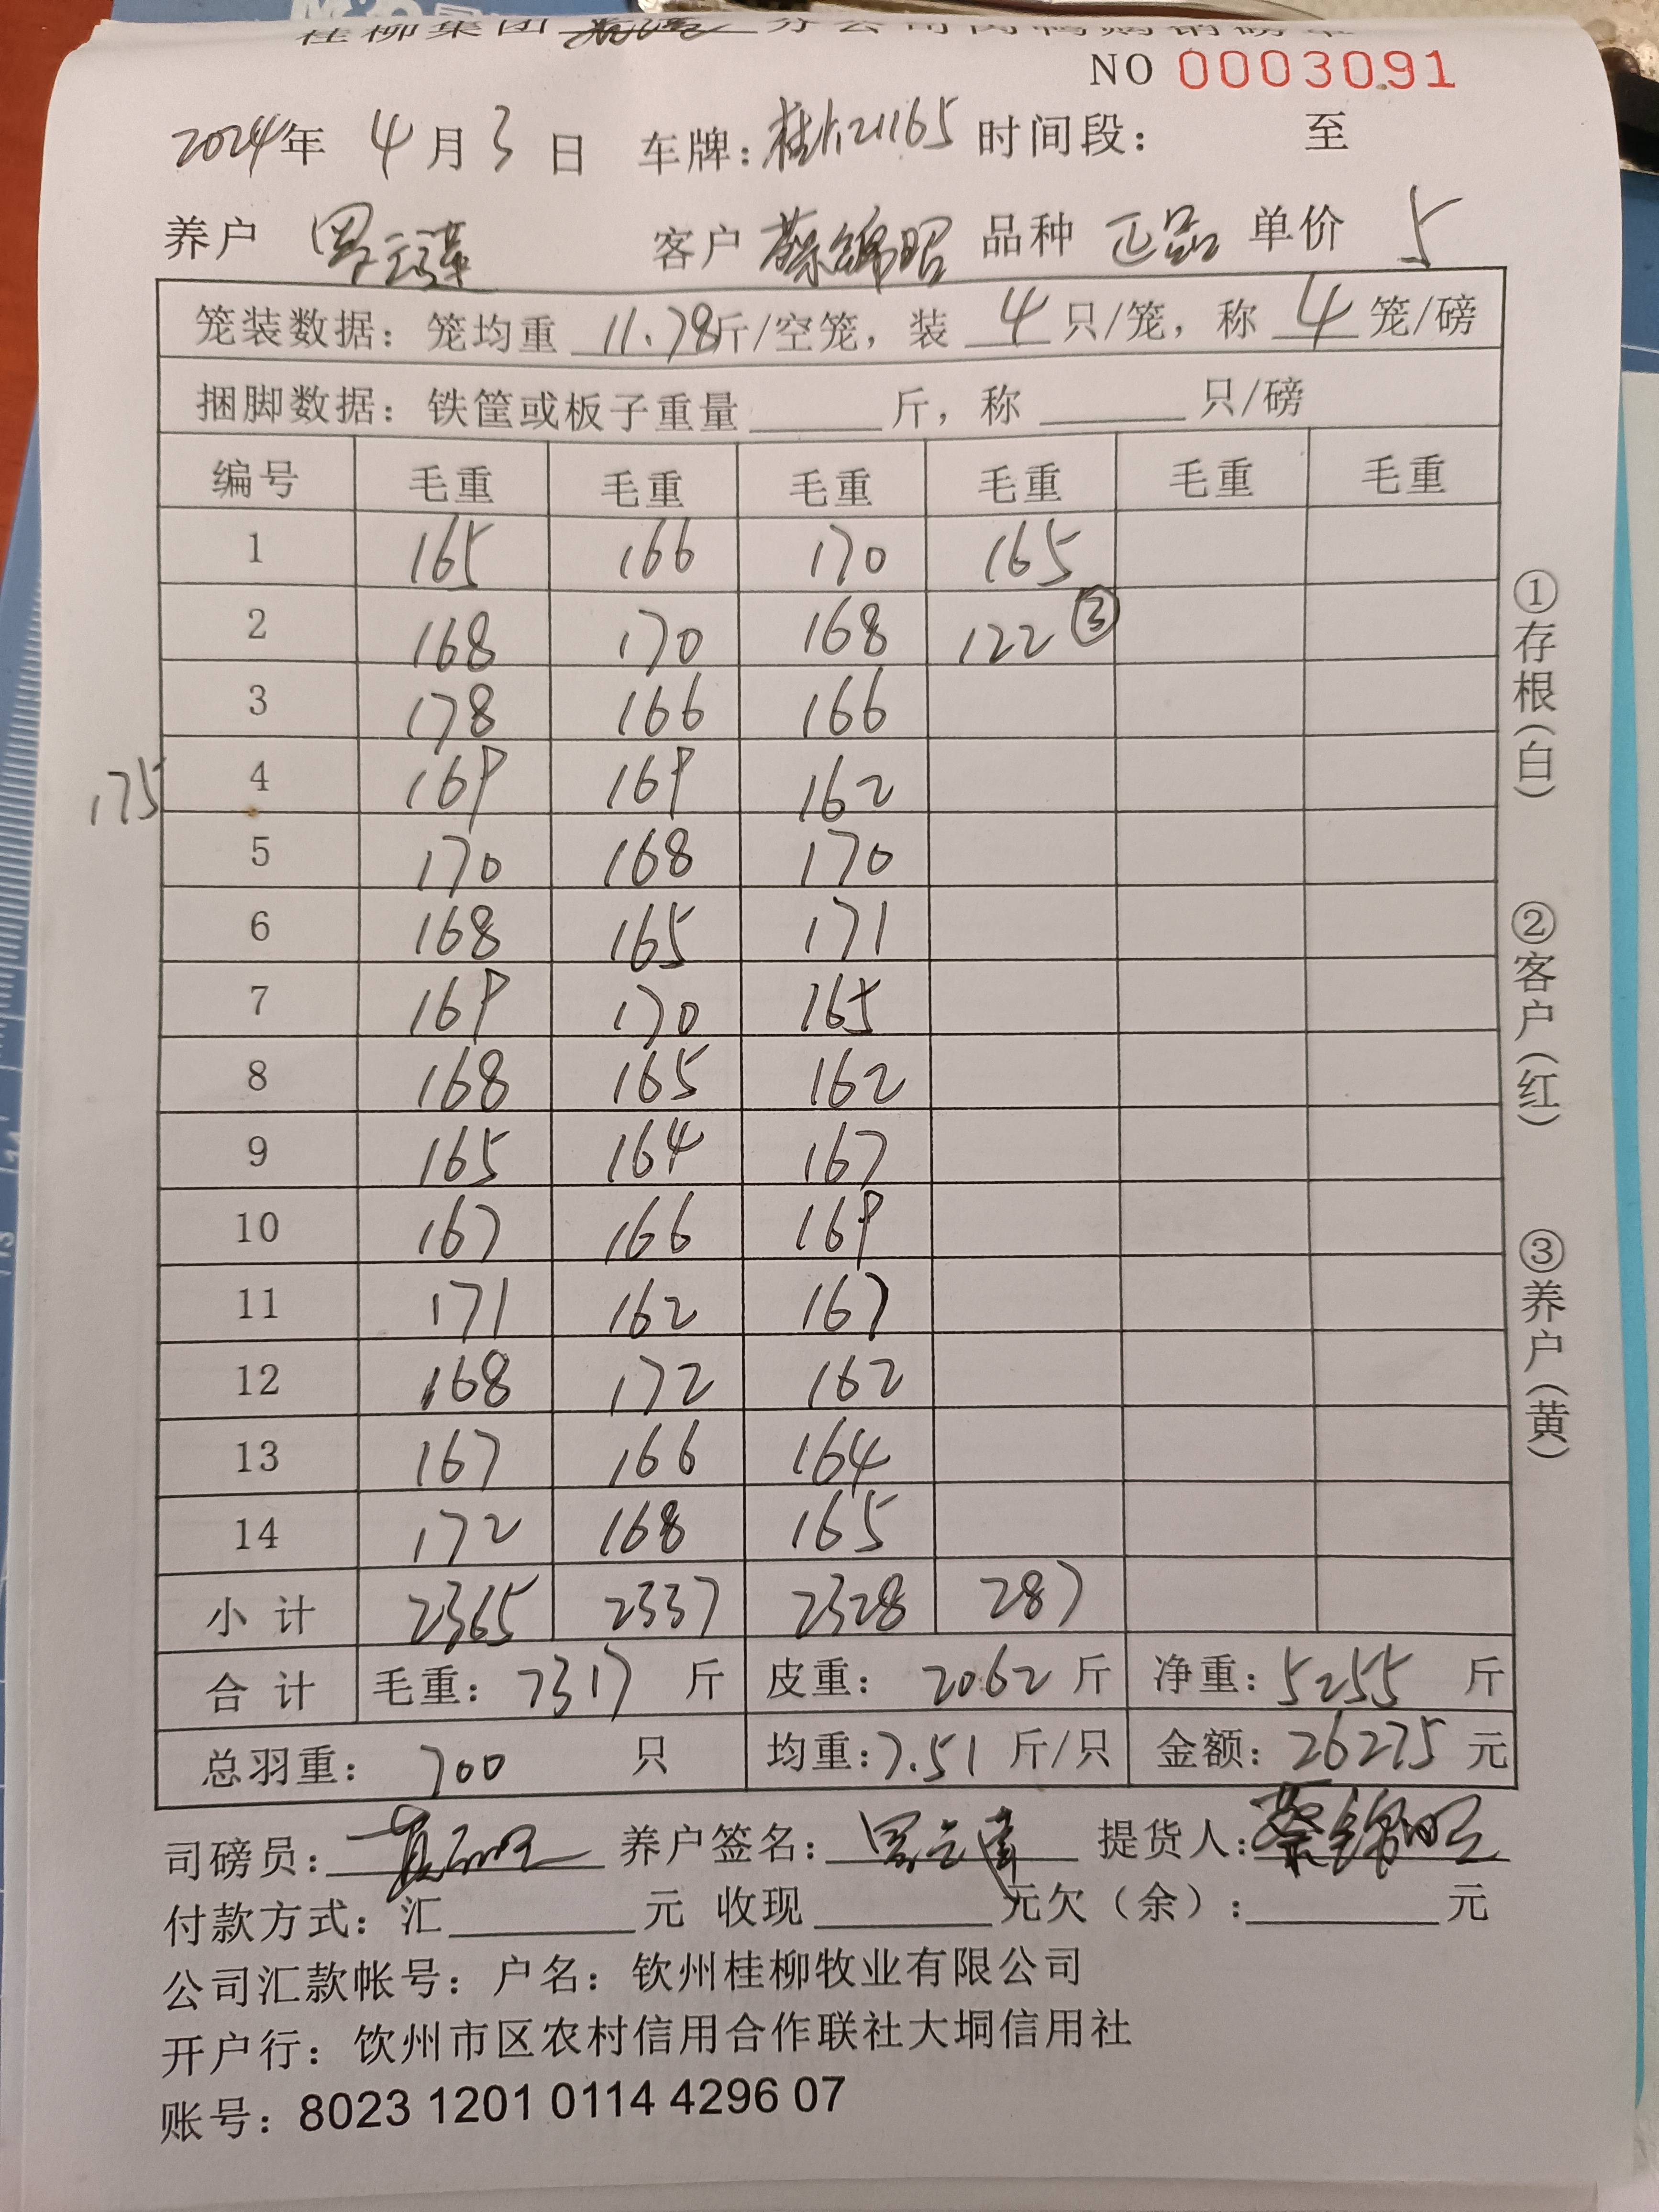 桂柳集团 分公司肉鸭购销磅单
NO 0003091
2024年 4月3日 车牌: 时间段: 至
养户 罗 客户 蔡锦昭 品种 正品 单价 5
笼装数据: 笼均重 11.78斤/空笼, 装 4 只/笼, 称 4 笼/磅
捆脚数据: 铁筐或板子重量______斤, 称______只/磅
编号 毛重 毛重 毛重 毛重 毛重 毛重
1 165 166 170 165
2 168 170 168 122 ③
3 178 166 166
175 4 169 169 162
5 170 168 170
6 168 165 171
7 169 170 165
8 168 165 162
9 165 164 167
10 167 166 169
11 171 162 167
12 168 172 162
13 167 166 164
14 172 168 165
小计 2365 2337 2328 287
合计 毛重: 7317 斤 皮重: 2062 斤 净重: 5255 斤
总羽重: 700 只 均重: 7.51 斤/只 金额: 26275 元
司磅员: 养户签名: 罗 提货人: 蔡锦昭
付款方式: 汇______元 收现______元欠(余):______元
公司汇款帐号: 户名: 钦州桂柳牧业有限公司
开户行: 饮州市区农村信用合作联社大垌信用社
账号: 8023 1201 0114 4296 07
①存根(白)
②客户(红)
③养户(黄)